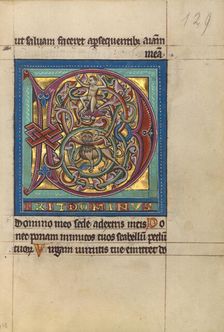 129
ut saluam faceret apsequentib; aiam
meā.
IXIT DOMINVS
domino meo sede adextris meis Do
nec ponam inimicos tuos scabellū pedū
tuoꝝ Virgam uirtutis tue emittet do